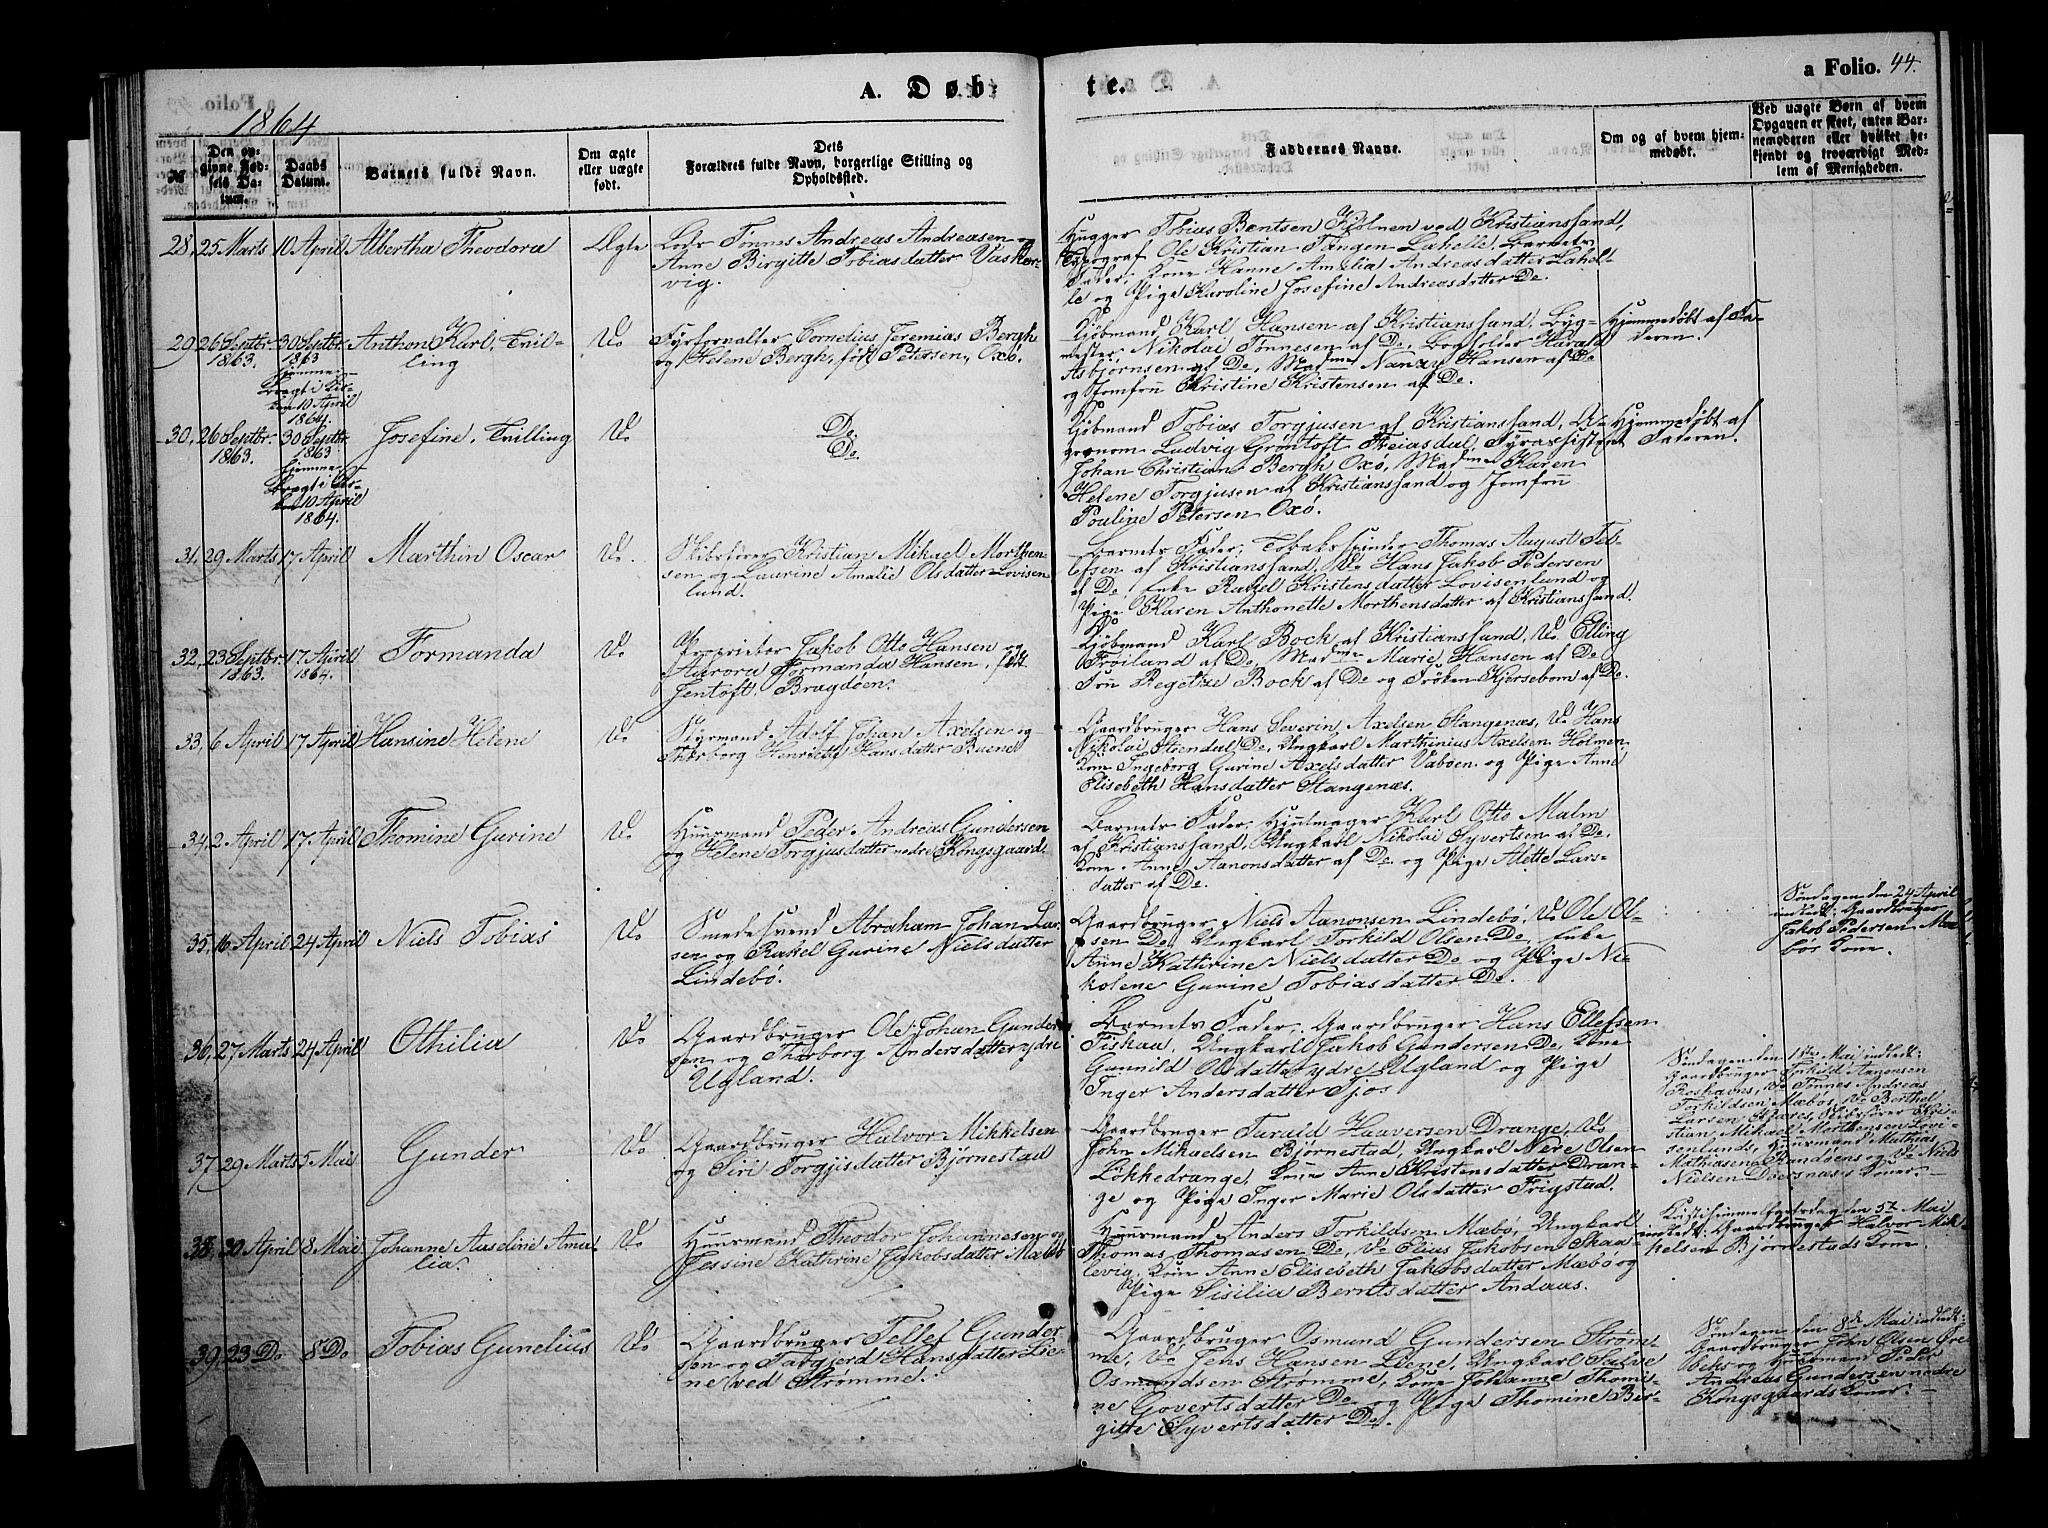 A. Døb=
te.
a Folio. 44.
1864
№
Den opgivne Fødsels Datum.
Daabs Datum.
Barnets fulde Navn.
Om ægte eller uægte født.
Dets
Forældres fulde Navn, borgerlige Stilling og
Opholdsted.
Faddernes Navne.
Om og af hvem hjemmedøbt.
Ved uægte Børn af hvem
Opgaven er skeet, enten Bar-
nemoderen eller hvilket be-
kjendt og troværdigt Med-
lem af Menigheden.
28, 25 Marts 10 April Albertha Theodora Ægte
Lods Tønnes Andreas Andreasen og
Anne Birgitte Tobiasdatter Vasker-
vig.
Hugger Tobias Bentsen Holmen ved Kristianssand,
Typograf Ole Kristian Tangen Lahelle, Barnets
Fader, Kone Hanne Amalia Andreasdatter Lahel-
le og Pige Karoline Josefine Andreasdatter Do.
29, 26 Septbr. 1863. 30 Septbr. 1863 hjemme.
Bragt i Kir-
ken 10 April
1864.
Anthon Karl, Tvil-
ling
Do
Fyrforvalter Cornelius Jeremias Bergh
og Helene Bergh, født Petersen, Oxø.
Kjøbmand Karl Hansen af Kristianssand, Byg-
mester Nikolai Tønnesen af Do, Bogholder Harald
Asbjørnsen af Do, Madme Nanzy Hansen af Do
og Jomfru Kristine Kristensen af Do.
Hjemmedøbt af Fa-
deren.
30, 26 Septbr. 1863. 30 Septbr. 1863 hjemme
Bragt i Kir-
ken 10 April
1864.
Josefine, Tvilling
Do
Do.
Do.
Kjøbmand Tobias Torgjusen af Kristianssand, A-
gronom Ludvig Grøntoft Theiasdal, Fyrassistent
Johan Christian Bergh Oxø, Madme Karen
Helene Torgjusen af Kristianssand og Jomfru
Pouline Petersen Oxø.
Hjemmedøbt af
Faderen.
31, 29 Marts 17 April Marthin Oscar Do.
Skibsfører Kristian Mikael Morthen-
sen og Laurine Amalie Olsdatter Lovisen-
lund.
Barnets Fader, Tobaksspinder Thomas August Tel-
lefsen af Kristianssand, Do Hans Jakob Pedersen
af Do, Enke Rakel Kristensdatter Lovisenlund og
Pige Karen Anthonette Morthensdatter af Kristianssand.
32, 23 Septbr. 1863. 17 April 1864. Formanda Do
Proprietær Jakob Otto Hansen og
Aurora Formanda Hansen, født
Jentoft, Bragdøen.
Kjøbmand Karl Bock af Kristianssand, Do Elling
Frøiland af Do, Madme Marie Hansen af Do
Fru Regetze Bock af Do og Frøken Kjersebom af Do.
33, 6 April 17 April Hansine Helene Do
Styrmand Adolf Johan Axelsen og
Thorborg Henriette Hansdatter Buene
Gaardbruger Hans Severin Axelsen Stangenæs, Do Hans
Nikolai Strendal Do, Ungkarl Marthinius Axelsen Holmen
Kone Ingeborg Gurine Axelsdatter Vabøen og Pige Anne
Elisebeth Hansdatter Stangenæs.
34, 2 April 17 April Thomine Gurine Do
Huusmand Peder Andreas Gundersen
og Helene Torgjusdatter nedre Kongsgaard.
Barnets Fader, Hjulmager Karl Otto Malm
af Kristianssand, Ungkarl Nikolai Syvertsen af Do,
Kone Anne Aanonsdatter af Do og Pige Alette Lars-
datter af Do.
35, 16 April 24 April Niels Tobias Do
Smedesvend Abraham Johan Lar-
sen og Rakel Gurine Nielsdatter
Lindebø.
Gaardbruger Niels Aanonsen Lindebø, Do Ole Ol-
sen Do, Ungkarl Torkild Olsen Do, Enke
Anne Kathrine Nielsdatter Do og Pige Ni-
kolene Gurine Tobiasdatter Do.
Søndagen den 24 April
indledt: Gaardbruger
Jakob Pedersen Mæ-
bøs Kone.
36, 27 Marts 24 April Othilia Do
Gaardbruger Ole Johan Gunder-
sen og Thorborg Andersdatter ydre
Ugland.
Barnets Fader, Gaardbruger Hans Ellefsen
Fiskaa, Ungkarl Jakob Gundersen Do, Kone
Gunnild Olsdatter ydre Ugland og Pige
Inger Andersdatter Tjos
Søndagen den 1ste Mai indledt:
Gaardbruger Torkild Aanonsen
Roshavns, Do Tønnes Andreas
Torkildsen Mæbøs, Do Berthel
Larsen Kjæres, Skibsfører Kri-
stian Mikael Morthensen Lovi-
senlunds, Huusmand Mathias
Mathiasen Randøens og Do Niels
Nielsen Dversnæs's Koner.
37, 29 Marts 5 Mai Gunder Do
Gaardbruger Halvor Mikkelsen
og Siri Torgjisdatter Bjørnestad
Gaardbruger Tarald Haaversen Drange, Do
John Mikaelsen Bjørnestad, Ungkarl Nere Olsen
Løkkedrange, Kone Anne Kristensdatter Dran-
ge og Pige Inger Marie Olsdatter Frigstad.
Kristihimmelfartsdag den 5te Mai
indledt: Gaardbruger Halvor Mik-
kelsen Bjørnestads Kone.
38, 30 April 8 Mai Johanne Aaseline Ama-
lia.
Do
Huusmand Theodor Johannesen og
Jessine Kathrine Jakobsdatter Mæbø
Huusmand Anders Torkildsen Mæbø, Ungkarl
Thomas Thomasen Do, Do Elias Jakobsen Skaa-
levig, Kone Anne Elisebeth Jakobsdatter Mæbø og
Pige Sisilia Berntsdatter Andaas.
39, 23 Do 8 Do Tobias Gunelius Do
Gaardbruger Tellef Gunder-
sen og Targjerd Hansdatter Lie-
ne ved Strømme.
Gaardbruger Osmund Gundersen Strøm-
me, Do Jens Hansen Liene, Ungkarl Salve
Osmundsen Strømme, Kone Johanne Thomi-
ne Govertsdatter Do og Pige Thomine Bir-
gitte Syvertsdatter Do.
Søndagen den 8de Mai indledt:
Gaardbruger John Olsen Øre-
beks og Huusmand Peder
Andreas Gundersen nedre
Kongsgaards Koner.